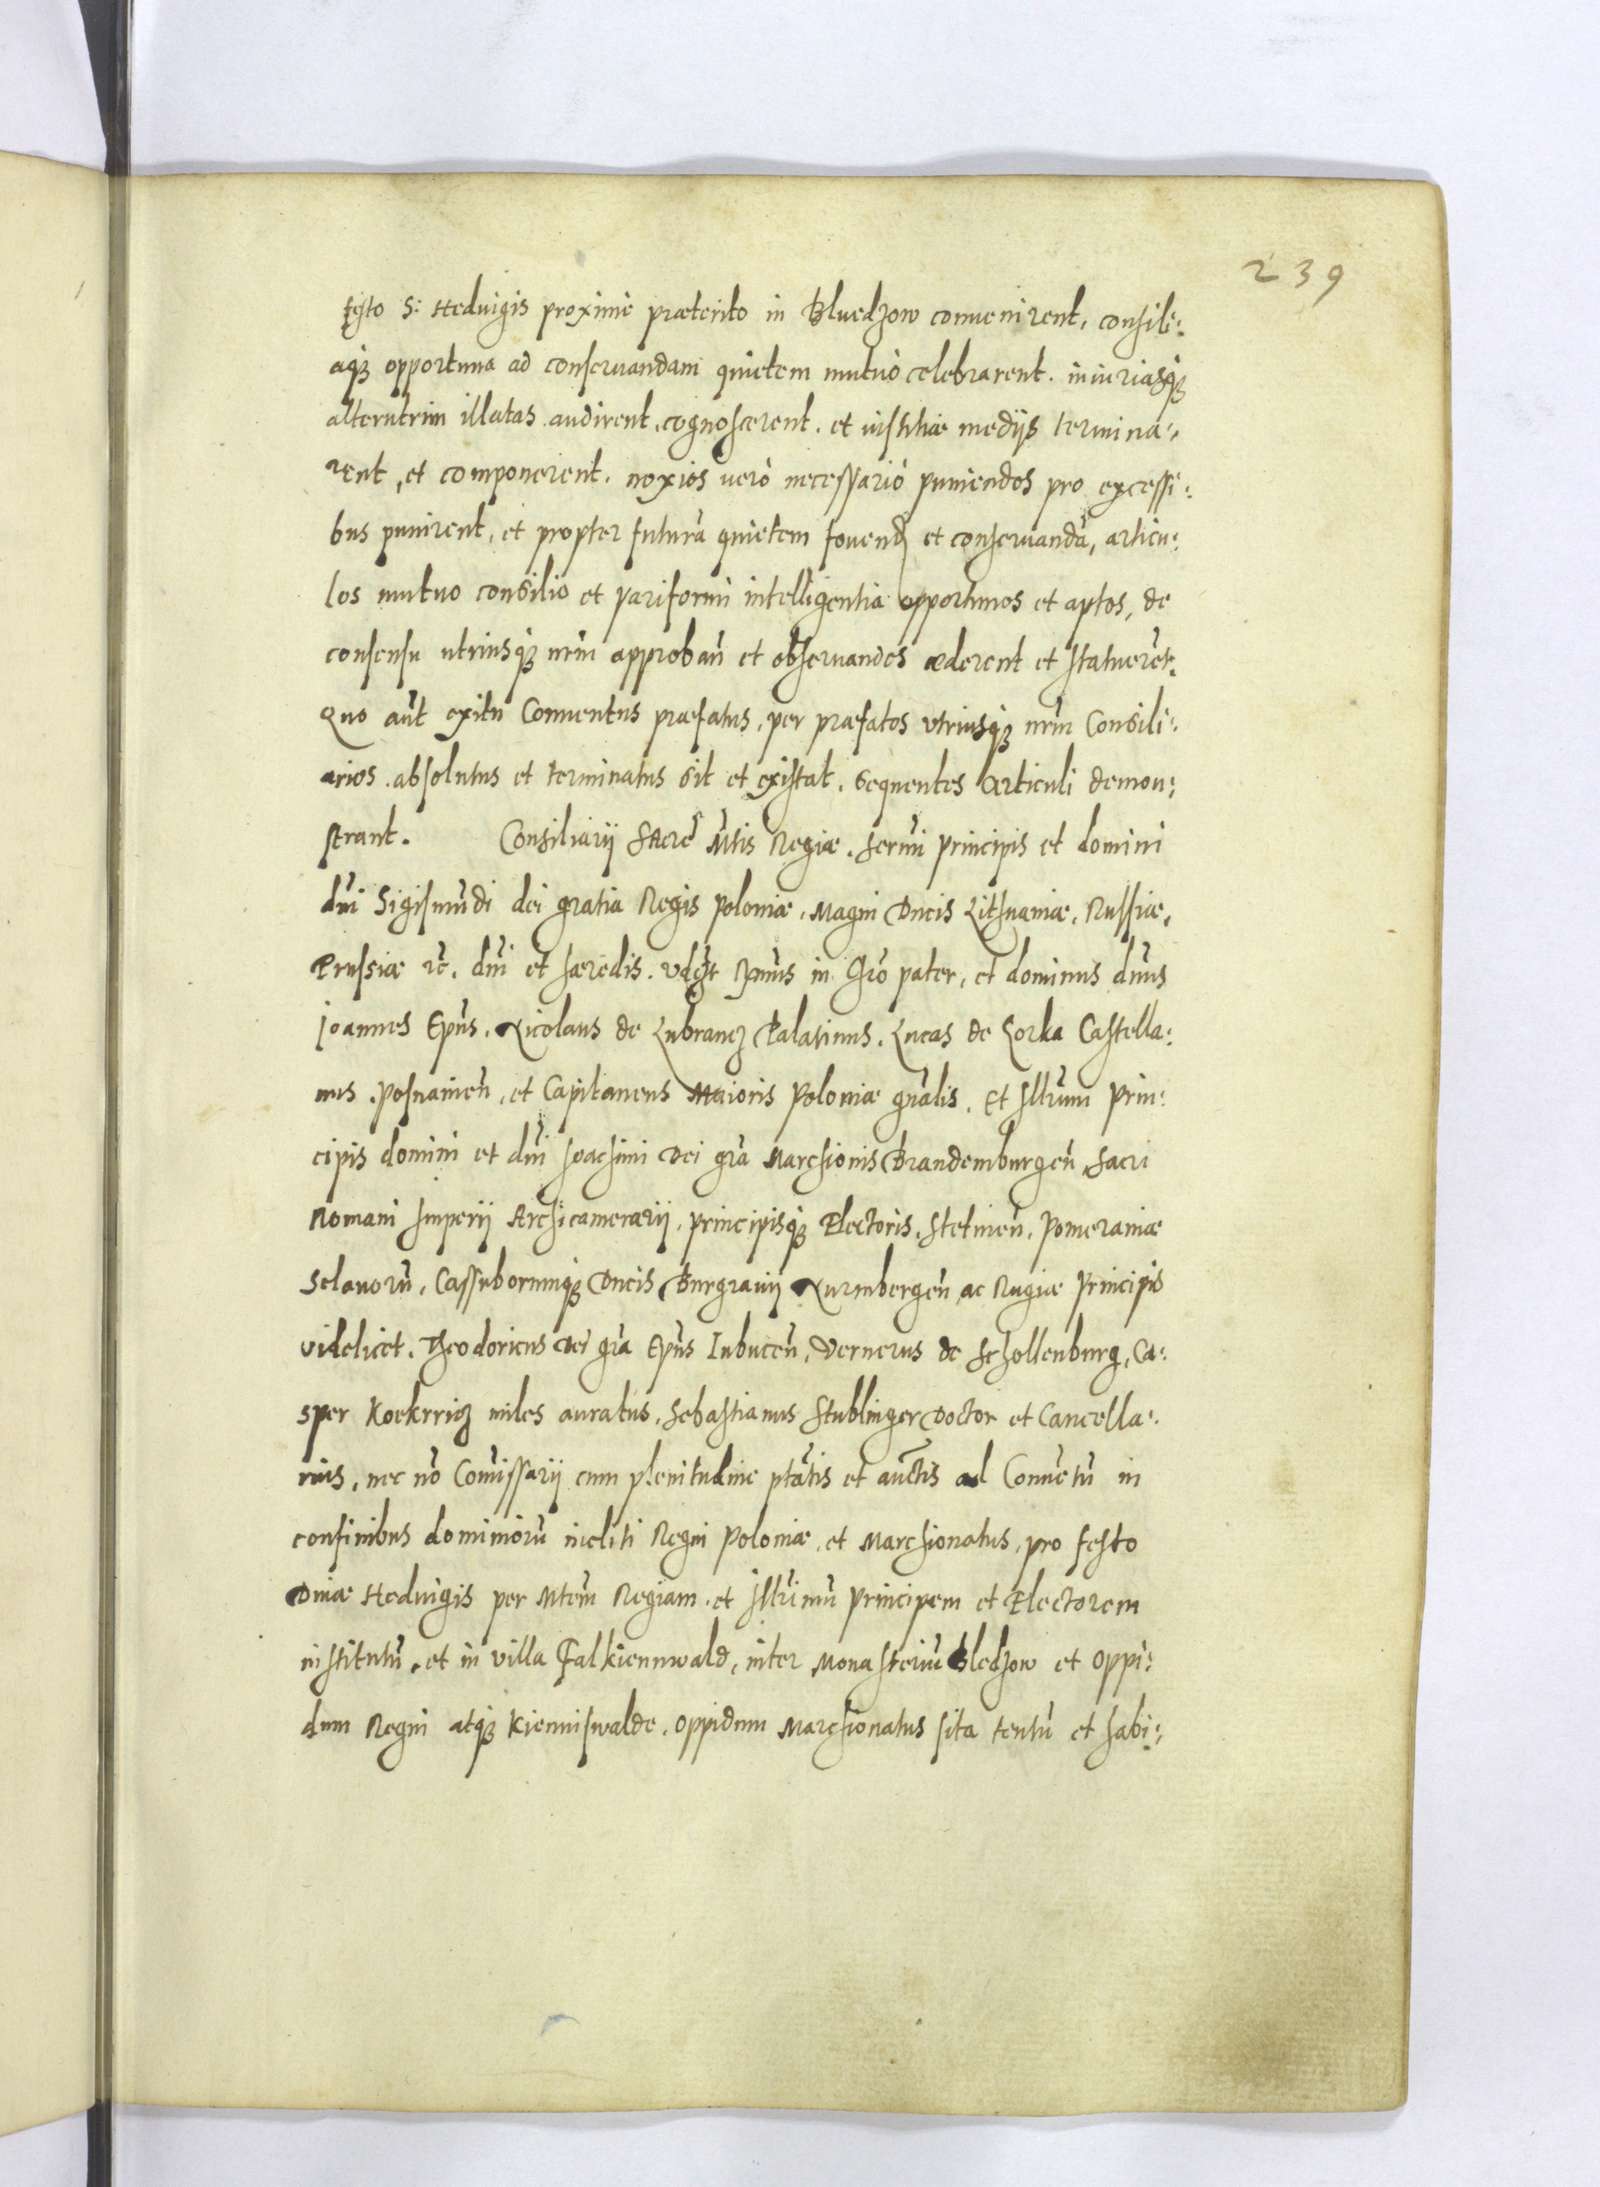 239
festo S: Heduigis proxime præterito in Bluedzow conuenirent, consili:
aqꝫ opportuna ad conseruandam quietem mutuò celebrarent. iniuriasqꝫ
alterutrim illatas audirent, cognoscerent. et iustitiæ medijs termina:
rent, et componerent. noxios uerò necessariò puniendos pro excessi:
bus punirent, et propter futurā quietem fouend et conseruandā, articu:
los mutuo consilio et pariformi intelligentia opportunos et aptos, de
consensu utriusqꝫ nr̄m approbań et obseruandos æderent et statuerēt.
Quo aūt exitu Conuentus præfatus, per præfatos vtriusqꝫ nr̄m Consili:
arios absolutus et terminatus sit et existat. Sequentes Articuli demon:
strant. Consiliarij Sacrę Mtis Regiæ. Sermi principis et domini
dn̄i Sigismūdi dei gratia Regis Poloniæ, Magni Ducis Lithuaniæ, Russiæ,
Prussiæ ꝛc. dn̄i et hæredis. vdꝫt Rmūs in Chrō pater, et dominus dn̄us
Joannes Ep̄us. Nicolaus de Lubrancz Palatinus. Lucas de Gorka Castella:
nus. Posnanień, et Capitaneus Maioris Poloniæ gn̄alis. Et Illr̄mi Prin:
cipis domini et dn̄i Joachimi Dei grā Marchionis Brandemburgeń, Sacri
Romani Imperij Archicamerarij, principisqꝫ Electoris. Stetineń. Pomeraniæ
Sclauorū, Cassuborumqꝫ Ducis Burgrauij Nurmbergeń ac Rugiæ Principis
videlicet. Theodoricus Dei grā Ep̄us Lubuceń, Vernerus de Schollenburg, Ca:
sper Koekrricz miles auratus, Sebastianus Stublinger Doctor et Cancella:
rius, nec nō Com̄issarij cum plenitudine ptātis et auc̄tis ad Conuētū in
confinibus dominiorū incliti Regni Poloniæ, et Marchionatus, pro festo
Diuæ Heduigis per Mtem̄ Regiam. et Illr̄imū Principem et Electorem
institutū. et in villa Falkiennwald, inter Monasteriū Bledzow et oppi:
dum Regni atqꝫ Kienniswalde. oppidum Marchionatus sita tentū et habi: